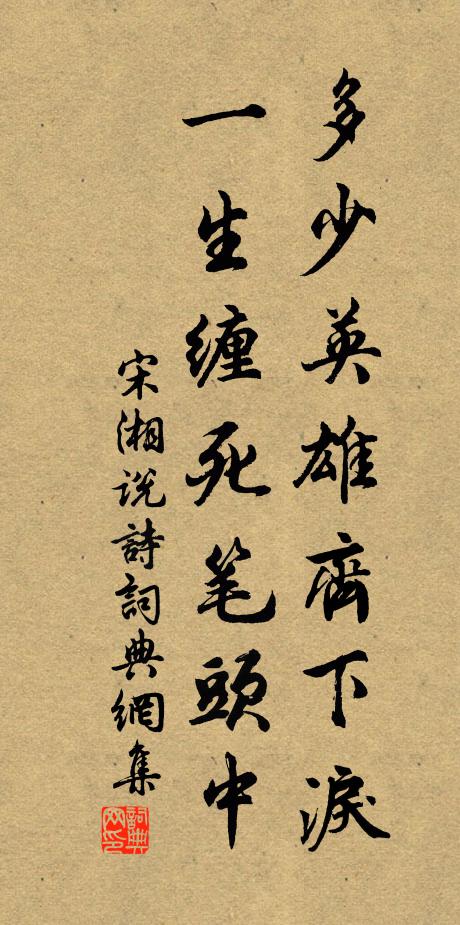 多少英雄齊下淚
一生纏死笔頭中
宋湘说詩詞典網集
詞典网印